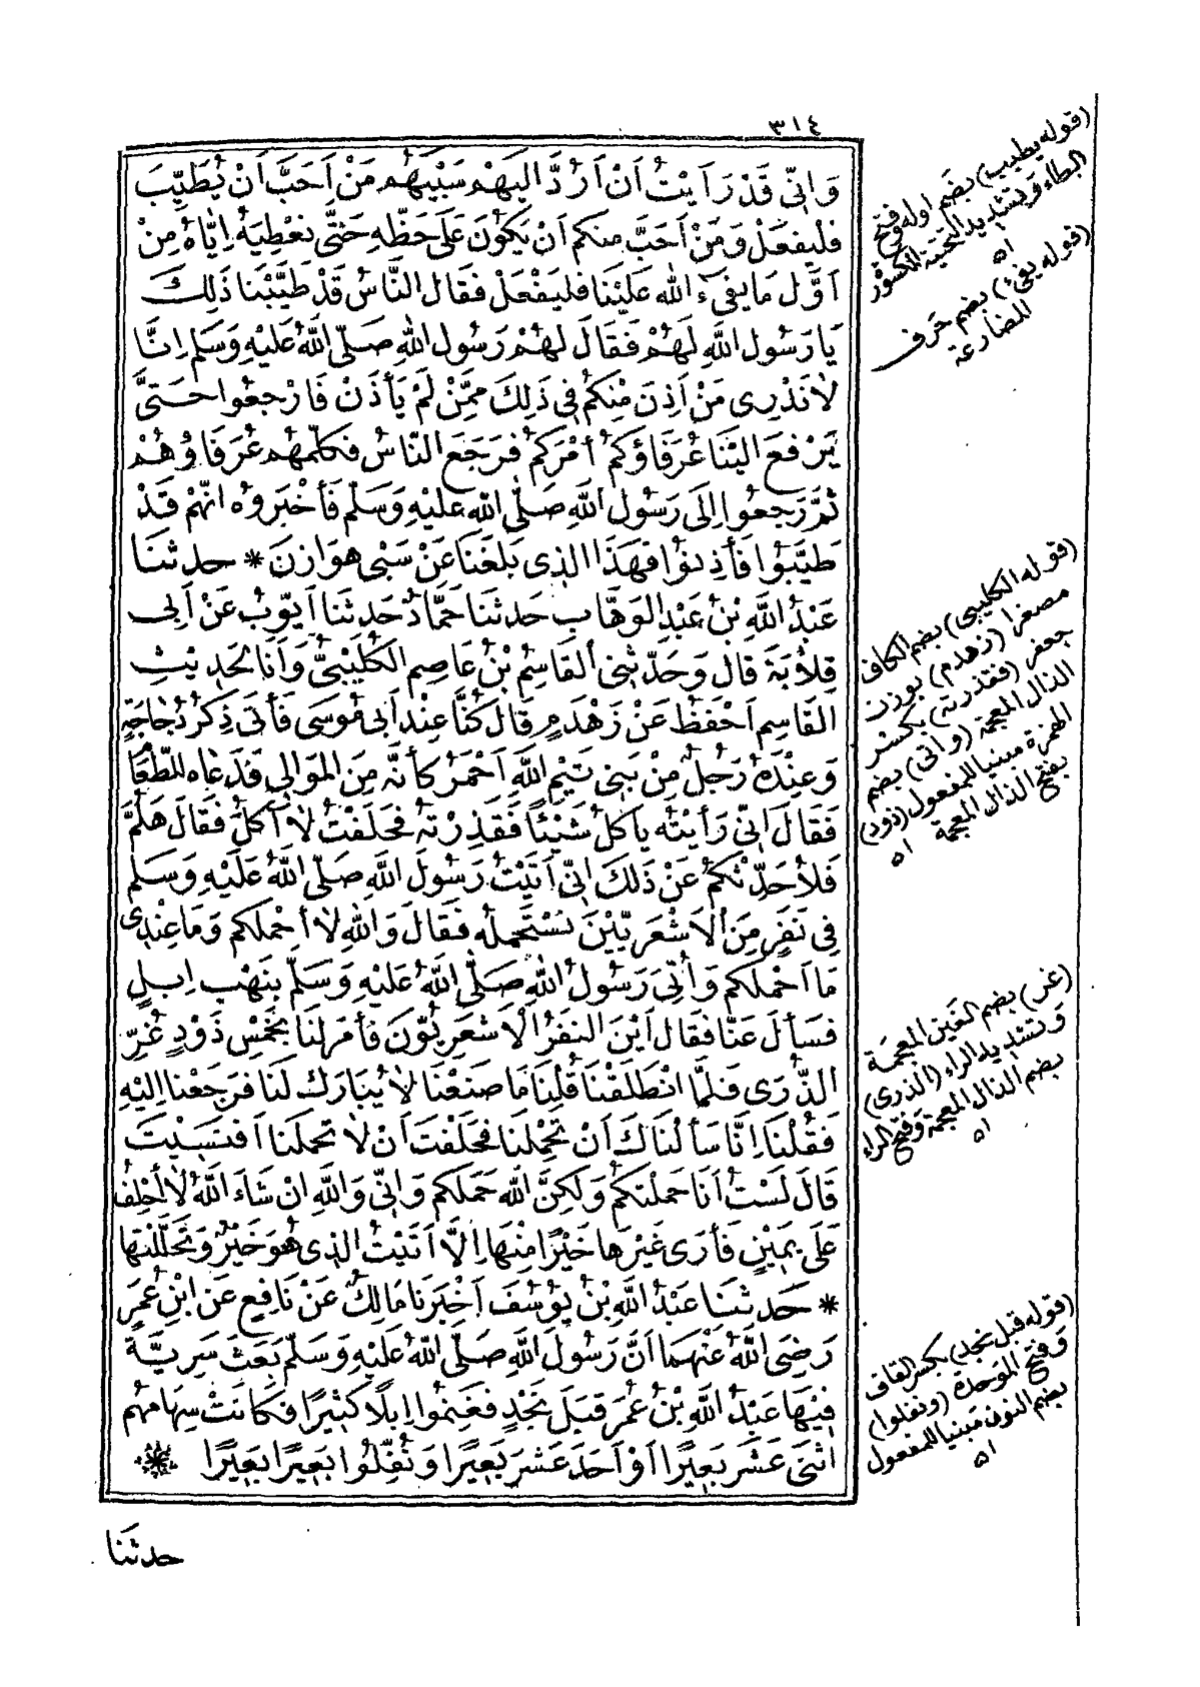 ٣١٤
وَاِنِّى قَدْ رَاَيْتُ اَنْ اَرُدَّ اِلَيْهِمْ سَبْيَهُمْ مَنْ اَحَبَّ اَنْ يُطَيِّبَ
فَلْيَفْعَلْ وَمَنْ اَحَبَّ مِنكُم اَنْ يَكُونَ عَلَى حَظِّهِ حَتَّى نُعْطِيَهُ اِيَّاهُ مِنْ
اَوَّلِ مَا يُفِىءُ اللهُ عَلَيْنَا فَلْيَفْعَلْ فَقَالَ النَّاسُ قَدْ طَيَّبْنَا ذَلِكَ
يَا رَسُولَ اللَّهِ لَهُمْ فَقَالَ لَهُمْ رَسُولُ اللهِ صَلَّى اللَّهُ عَلَيْهِ وَسَلَّم اِنَّا
لاَ نَدْرِى مَنْ اَذِنَ مِنْكُمْ فِى ذَلِكَ مِمَّنْ لَمْ يَأْذَنْ فَارْجِعُوا حَتَّى
يَرْفَعَ اِلَيْنَا عُرَفَاؤُكُمْ اَمْرَكُمْ فَرَجَعَ النَّاسُ فَكَلَّمَهُم عُرَفَاؤُهُمْ
ثُمَّ رَجَعُوا اِلَى رَسُولِ اللَّهِ صَلَّى اللهُ عَلَيْهِ وَسَلَّمَ فَأَخْبَرُوهُ اَنَّهُمْ قَدْ
طَيَّبُوا فَأَذِنُوا فَهَذَا الذِى بَلَغَنَا عَنْ سَبْىِ هَوَازِنَ * حدثنَا
عَبْدُ اللَّهِ بْنُ عَبْدِ الوَهَّابِ حَدثنَا حَمَّادٌ حَدثنَا اَيُّوبُ عَنْ اَبِى
قِلاَبَةَ قَالَ وَحَدَّثَنِى القَاسِمُ بْنُ عَاصِمٍ الكُلَيْبِىُّ وَاَنَا لِحَدِيثِ
القَاسِمِ اَحْفَظُ عَنْ زَهْدَمٍ قَالَ كُنَّا عِنْدَ اَبِى مُوسَى فَأُتِىَ ذِكْرُ دُجَاجَةٍ
وَعِنْدَهُ رَجُلٌ مِنْ بَنِى تَيْمِ اللَّهِ اَحْمَرُ كَأَنَّهُ مِنَ المَوَالِى فَدَعَاه لِلطَّعَامِ
فَقَالَ اِنِّى رَأَيْتُه يَأكُلُ شَيْئًا فَقَذِرْتُهُ فَحَلَفْتُ لاَ آكُلُ فَقَالَ هَلُمَّ
فَلأُحَدِّثْكُمْ عَنْ ذَلِكَ اِنِّى اَتَيْتُ رَسُولَ اللَّهِ صَلَّى اللَّهُ عَلَيْهِ وَسَلَّم
فِى نَفَرٍ مِنَ الأَشْعَرِيِّيْنَ نَسْتَحْمِلُهُ فَقَالَ وَاللَّهِ لاَ اَحْمِلُكُم وَمَا عِنْدِى
مَا اَحْمِلُكُم وَأُتِىَ رَسُولُ اللَّهِ صَلَّى اللَّهُ عَلَيْهِ وَسَلَّم بِنَهْبِ اِبِلٍ
فَسَأَلَ عَنَّا فَقَال اَيْنَ النَفَرُ الاَشْعَرِيُّونَ فَأَمَرَ لَنَا بِخَمْسِ ذَوْدٍ غُرِّ
الذُّرَى فَلَمَّا انْطَلَقْنَا قُلْنَا مَا صَنَعْنَا لاَ يُبَارَكُ لَنَا فَرَجَعْنَا اِلَيْهِ
فَقُلْنَا اِنَّا سَأَلْنَاكَ اَنْ تَحْمِلَنَا فَحَلَفْتَ اَنْ لاَ تَحْمِلَنَا اَفَنَسِيْتَ
قَالَ لَسْتُ اَنَا حَمَلْتُكُمْ وَلَكِنَّ اللَّهَ حَمَلَكُم وَاِنِّى وَاللَّهِ اِنْ شَاءَ اللَّهُ لاَ اَحْلِفُ
عَلَى يَمِيْنٍ فَأَرَى غَيْرَهَا خَيْرًا مِنْهَا اِلَّا اَتَيْتُ الذِى هُوَ خَيْرٌ وَتَحَلَّلْتُهَا
* حَدثنَا عَبْدُ اللَّهِ بْنُ يُوسُفَ اَخْبَرَنَا مَالِكٌ عَنْ نَافِعٍ عَن ابْنِ عُمَرَ
رَضِىَ اللَّهُ عَنْهُمَا اَنَّ رَسُولَ اللَّهِ صَلَّى اللَّهُ عَلَيْهِ وَسَلَّمَ بَعَثَ سَرِيَّةً
فِيْهَا عَبْدُ اللَّهِ بْنُ عُمَرَ قِبَلَ نَجْدٍ فَغَنِمُوا اِبِلًا كَثِيْرًا فَكَانَتْ سِهَامُهُم
اثْنَى عَشَرَ بَعِيْرًا اَوْ اَحَدَ عَشَرَ بَعِيْرًا وَنُفِّلُوا بَعِيْرًا بَعِيْرًا
حدثنَا
(قوله يطيب) بضم اوله وفتح
الطاء وتشديد التحتية المكسورة
اه
(قوله يفىء) بضم حرف
المضارعة
(قوله الكليبى) بضم الكاف
مصغرا (زهدم) بوزن
جعفر (فقذرته) بكسر
الذال المعجمة (وأتى) بضم
الهمزة مبنيا للمفعول (ذود)
بفتح الذال المعجمة اه
(غر) بضم الغين المعجمة
وتشديد الراء (الذرى)
بضم الذال المعجمة وفتح الراء
اه
(قوله قبل نجد) بكسر القاف
وفتح الموحدة (ونفلوا)
بضم النون مبنيا للمفعول
اه